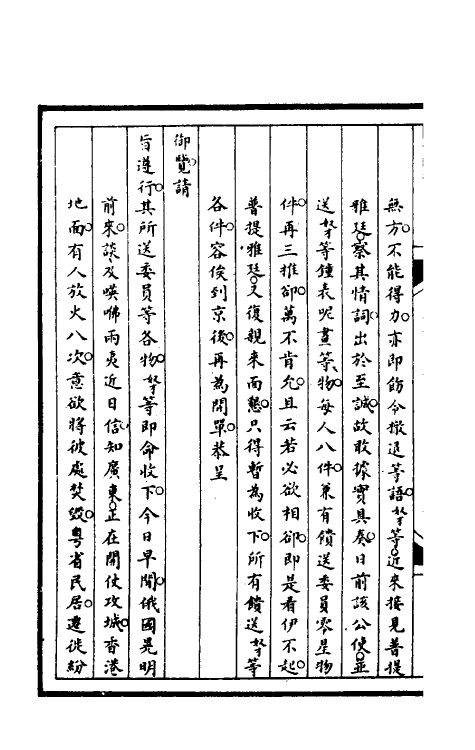 無方不能得力亦即飭令撤退等語奴才等近來接見普提
雅廷察其情詞出於至誠故敢據實具奏日前該公使並
送奴才等鐘表呢畫等物每人八件兼有饋送委員零星物
件再三推卻萬不肯允且云若必欲相卻即是看伊不起
普提雅廷又復親來面懇只得暫為收下所有饋送奴才等
各件容俟到京後再為開單恭呈
御覽請
旨遵行其所送委員等各物奴才等即命收下今日早間俄國晃明
前來談及𠸄咈兩夷近日信知廣東正在開仗攻城香港
地面有人放火八次意欲將彼處焚毀粵省民居遷徙紛